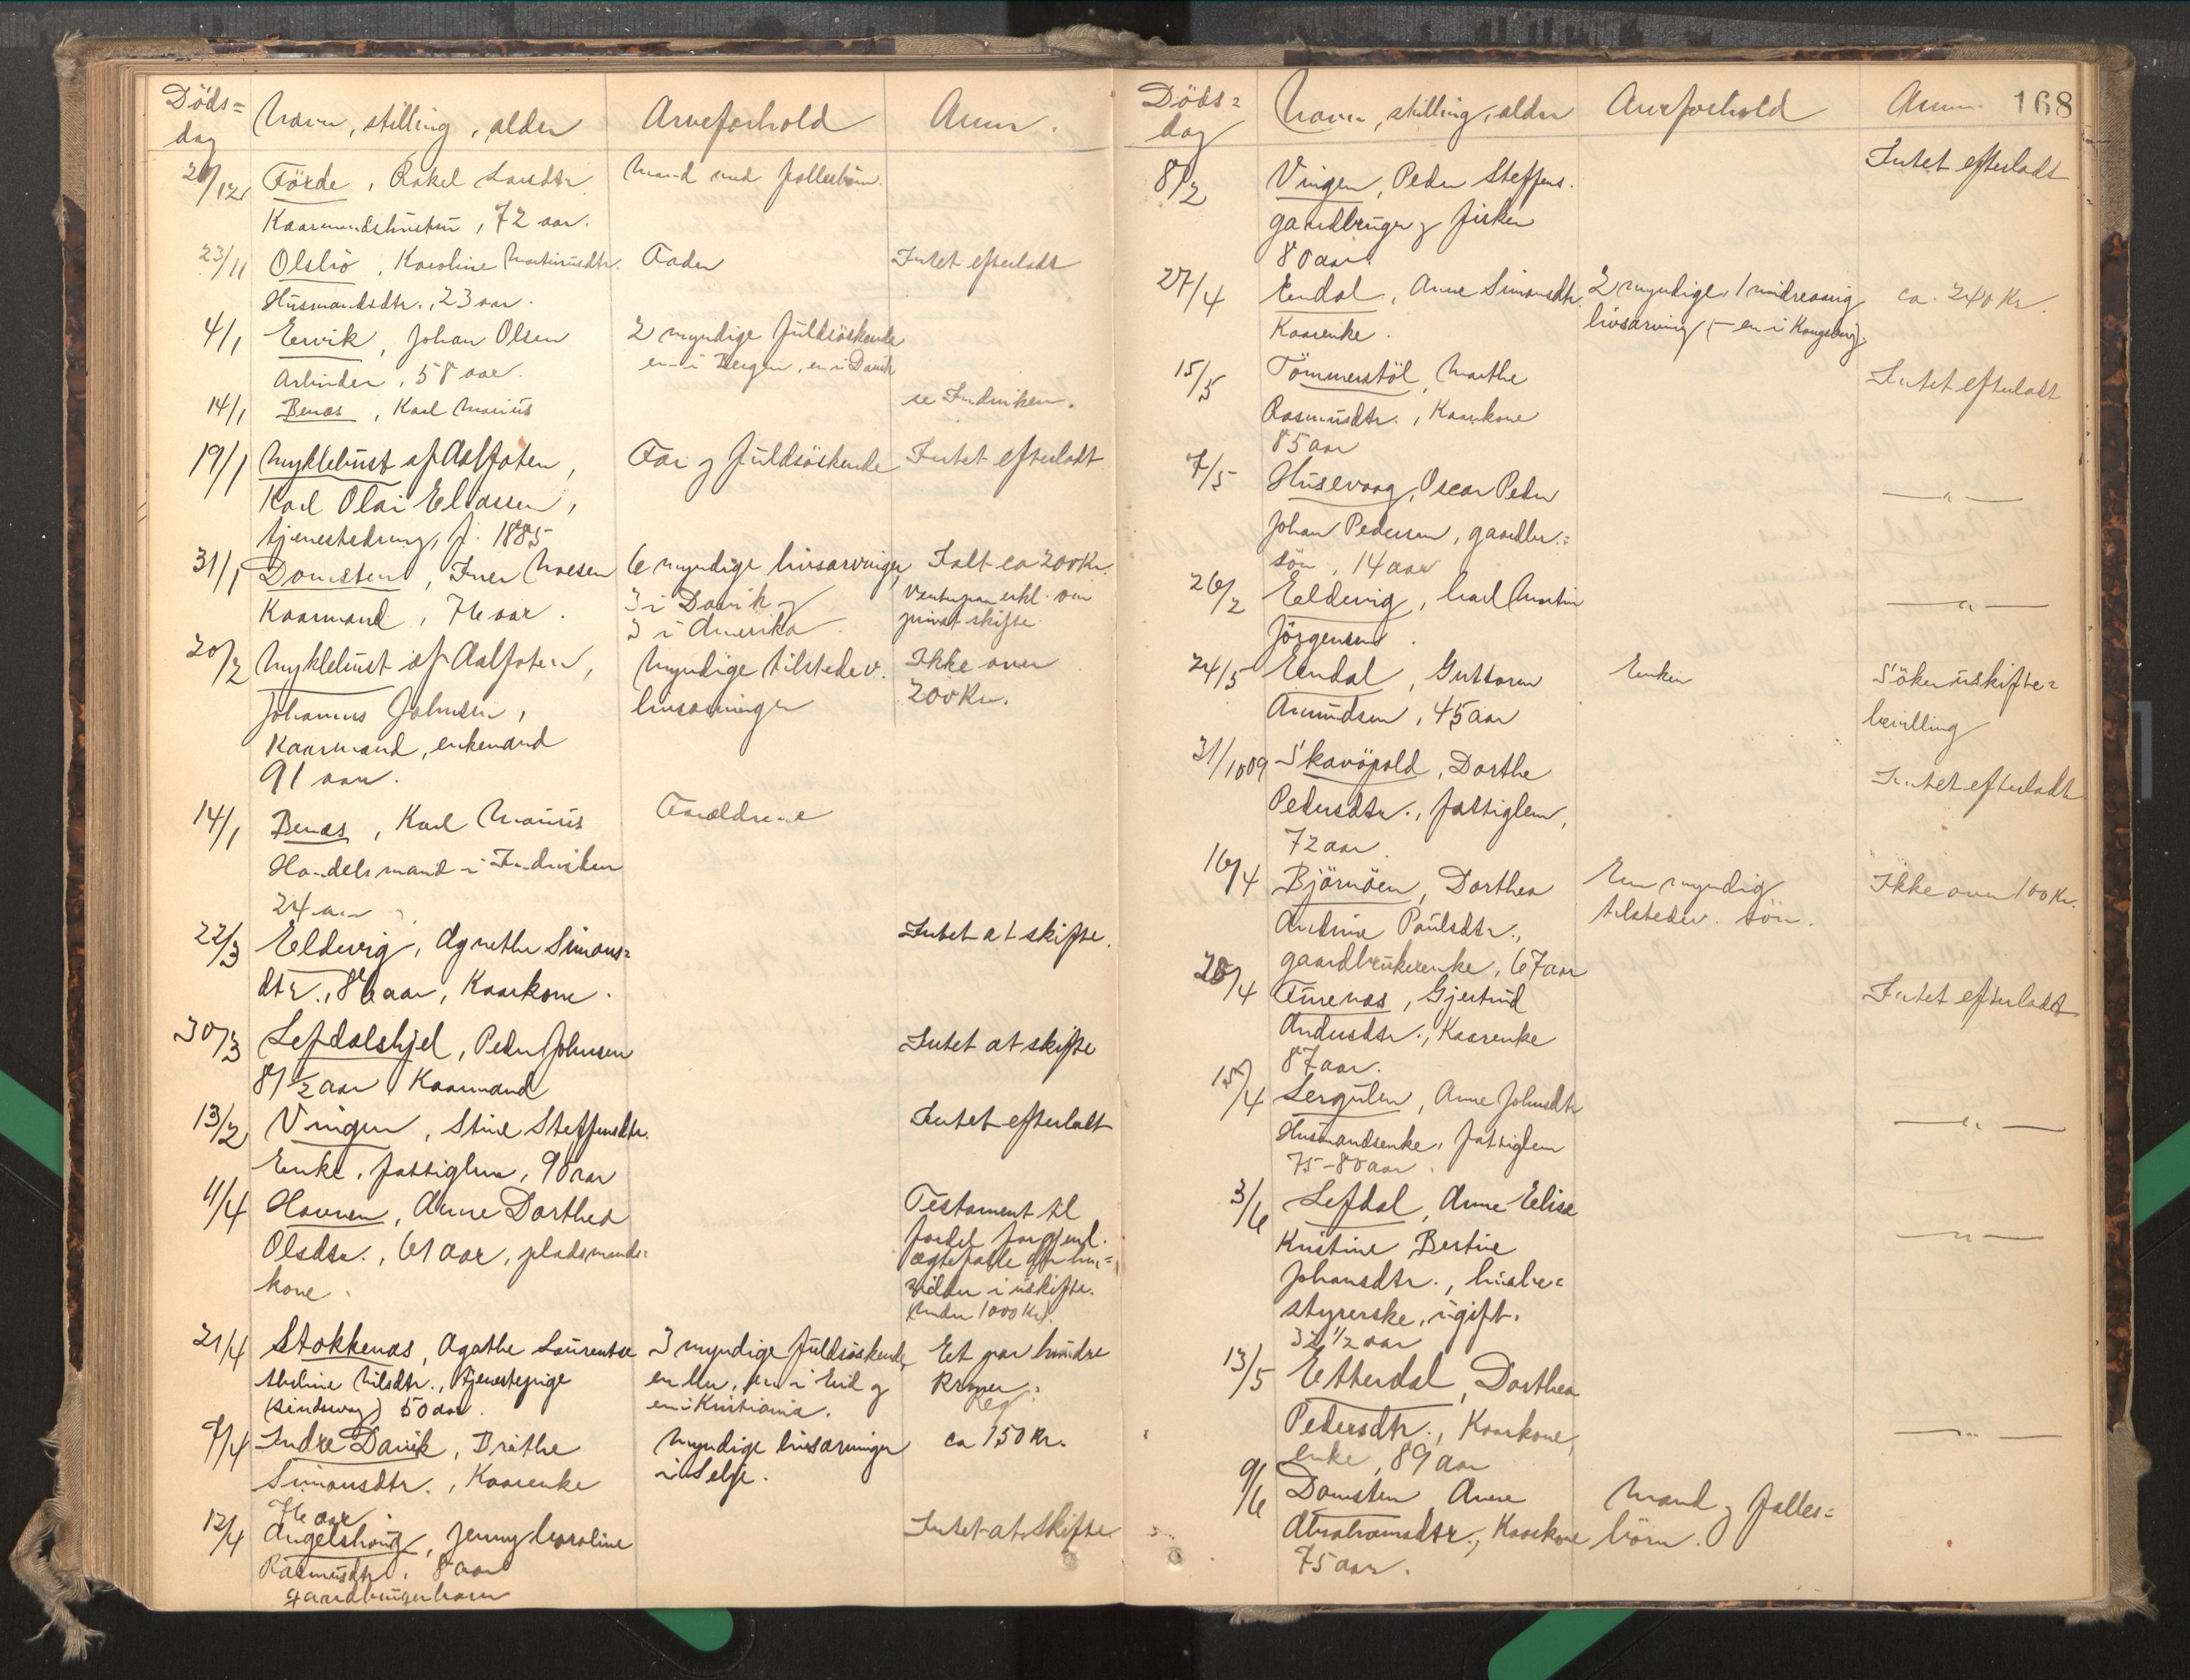 Döds=
dag
Navn, stilling, alder
Arveforhold
Anm.
20/12
Förde, Rakel Larsdtr.
Mand med fællesbörn.
Kaarmandshustru, 72 aar.
23/11
Olsbö, Karoline Martinusdtr.
Fader
Intet efterladt
Husmandsdtr., 23 aar.
4/1
Ervik, Johan Olsen
2 myndige fuldsöskende
Arbeider, 58 aar.
en i Bergen, en i Davik
14/1
Benæs, Karl Marius
se Indviken.
19/1
Myklebust af Aalfoten,
Far og fuldsöskende
Intet efterladt
Karl Olai Eliassen,
tjenestedreng, f. 1885
31/1
Domsten, Iver Moesen
6 myndige livsarvinger,
Ialt ca 200 Kr.
Kaarmand, 76 aar.
3 i Davik og
3 i Amerika.
erkl. om
privat skifte
20/2
Myklebust af Aalfoten,
Myndige tilstedev.
Ikke over
Johannes Johnsen,
livsarvinger
200 Kr.
Kaarmand, enkemand
91 aar.
14/1
Benæs, Karl Marius
Forældrene
Handelsmand i Indviken
24 aar
22/3
Eldevig, Agnethe Simons=
Intet at skifte.
dtr., 86 aar, Kaarkone.
30/3
Lefdalshjel, Peder Johnsen
Intet at skifte
81 1/2 aar Kaarmand
13/2
Vingen, Stine Steffensdtr.
Intet efterladt
Enke, fattiglem, 90 aar
11/4
Havnen, Anne Dorthea
Testament til
Olsdtr., 61 aar, pladsmands=
fordel for gjenl.
kone.
ægtefælle
sidder i uskifte.
(Under 1000 Kr.)
21/4
Stokkenæs, Agathe Laurentse
3 myndige fuldsöskende,
Et par hundre
Nilsdtr., tjenestepige
en i Eid og
Kroner.
50 aar.
en i Kristiania.
Reg.
7/4
Indre Davik, Brithe
Myndige livsarvinger
ca 150 Kr.
Simonsdtr., Kaarenke
i Selje.
76 aar.
12/4
Angelshaug, Jenny Caroline
Intet at skifte
Rasmusdtr, 8 aar
gaardbrugerbarn
Döds=
dag
Navn, stilling, alder
Arveforhold
Anm.
168
8/2
Vingen, Peder Steffens.
Intet efterladt
gaardbruger og fisker
80 aar.
27/4
Endal, Anne Simonsdtr.
2 myndige, 1 mindreaarig
ca. 240 Kr.
Kaarenke.
livsarving (— en i Kongsberg).
15/5
Tömmerstöl, Marthe
Intet efterladt
Rasmusdtr., Kaarkone
85 aar
7/5
Husevaag, Oscar Peder
— " —
Johan Pedersen, gaardbr.=
sön, 14 aar
26/2
Eldevig, Carl Martin
— " —
Jörgensen.
24/5
Endal, Guttorm
Enken
Söker uskifte=
Amundsen, 45 aar
bevilling
31/10 09
Skavöpold, Dorthe
Intet efterladt
Pedersdtr., fattiglem,
72 aar.
16/4
Björnöen, Dorthea
Een myndig
Ikke over 100 Kr.
Andrine Paulsdtr.,
tilstedev. sön.
gaardbrukerenke, 67 aar
28/4
Furenæs, Gjertrud
Intet efterladt
Andersdtr., Kaarenke
87 aar.
15/4
Sergulen, Anne Johnsdtr
— " —
Husmandsenke, fattiglem
75-80 aar.
3/6
Lefdal, Anne Elise
— " —
Kristine Bertine
Johansdtr., husbe=
styrerske, ugift.
32 1/2 aar
13/5
Etterdal, Dorthea
Pedersdtr., Kaarkone,
— " —
enke, 89 aar
9/6
Domsten Anne
Mand og fælles=
Abrahamsdtr., Kaarkone
börn.
75 aar.